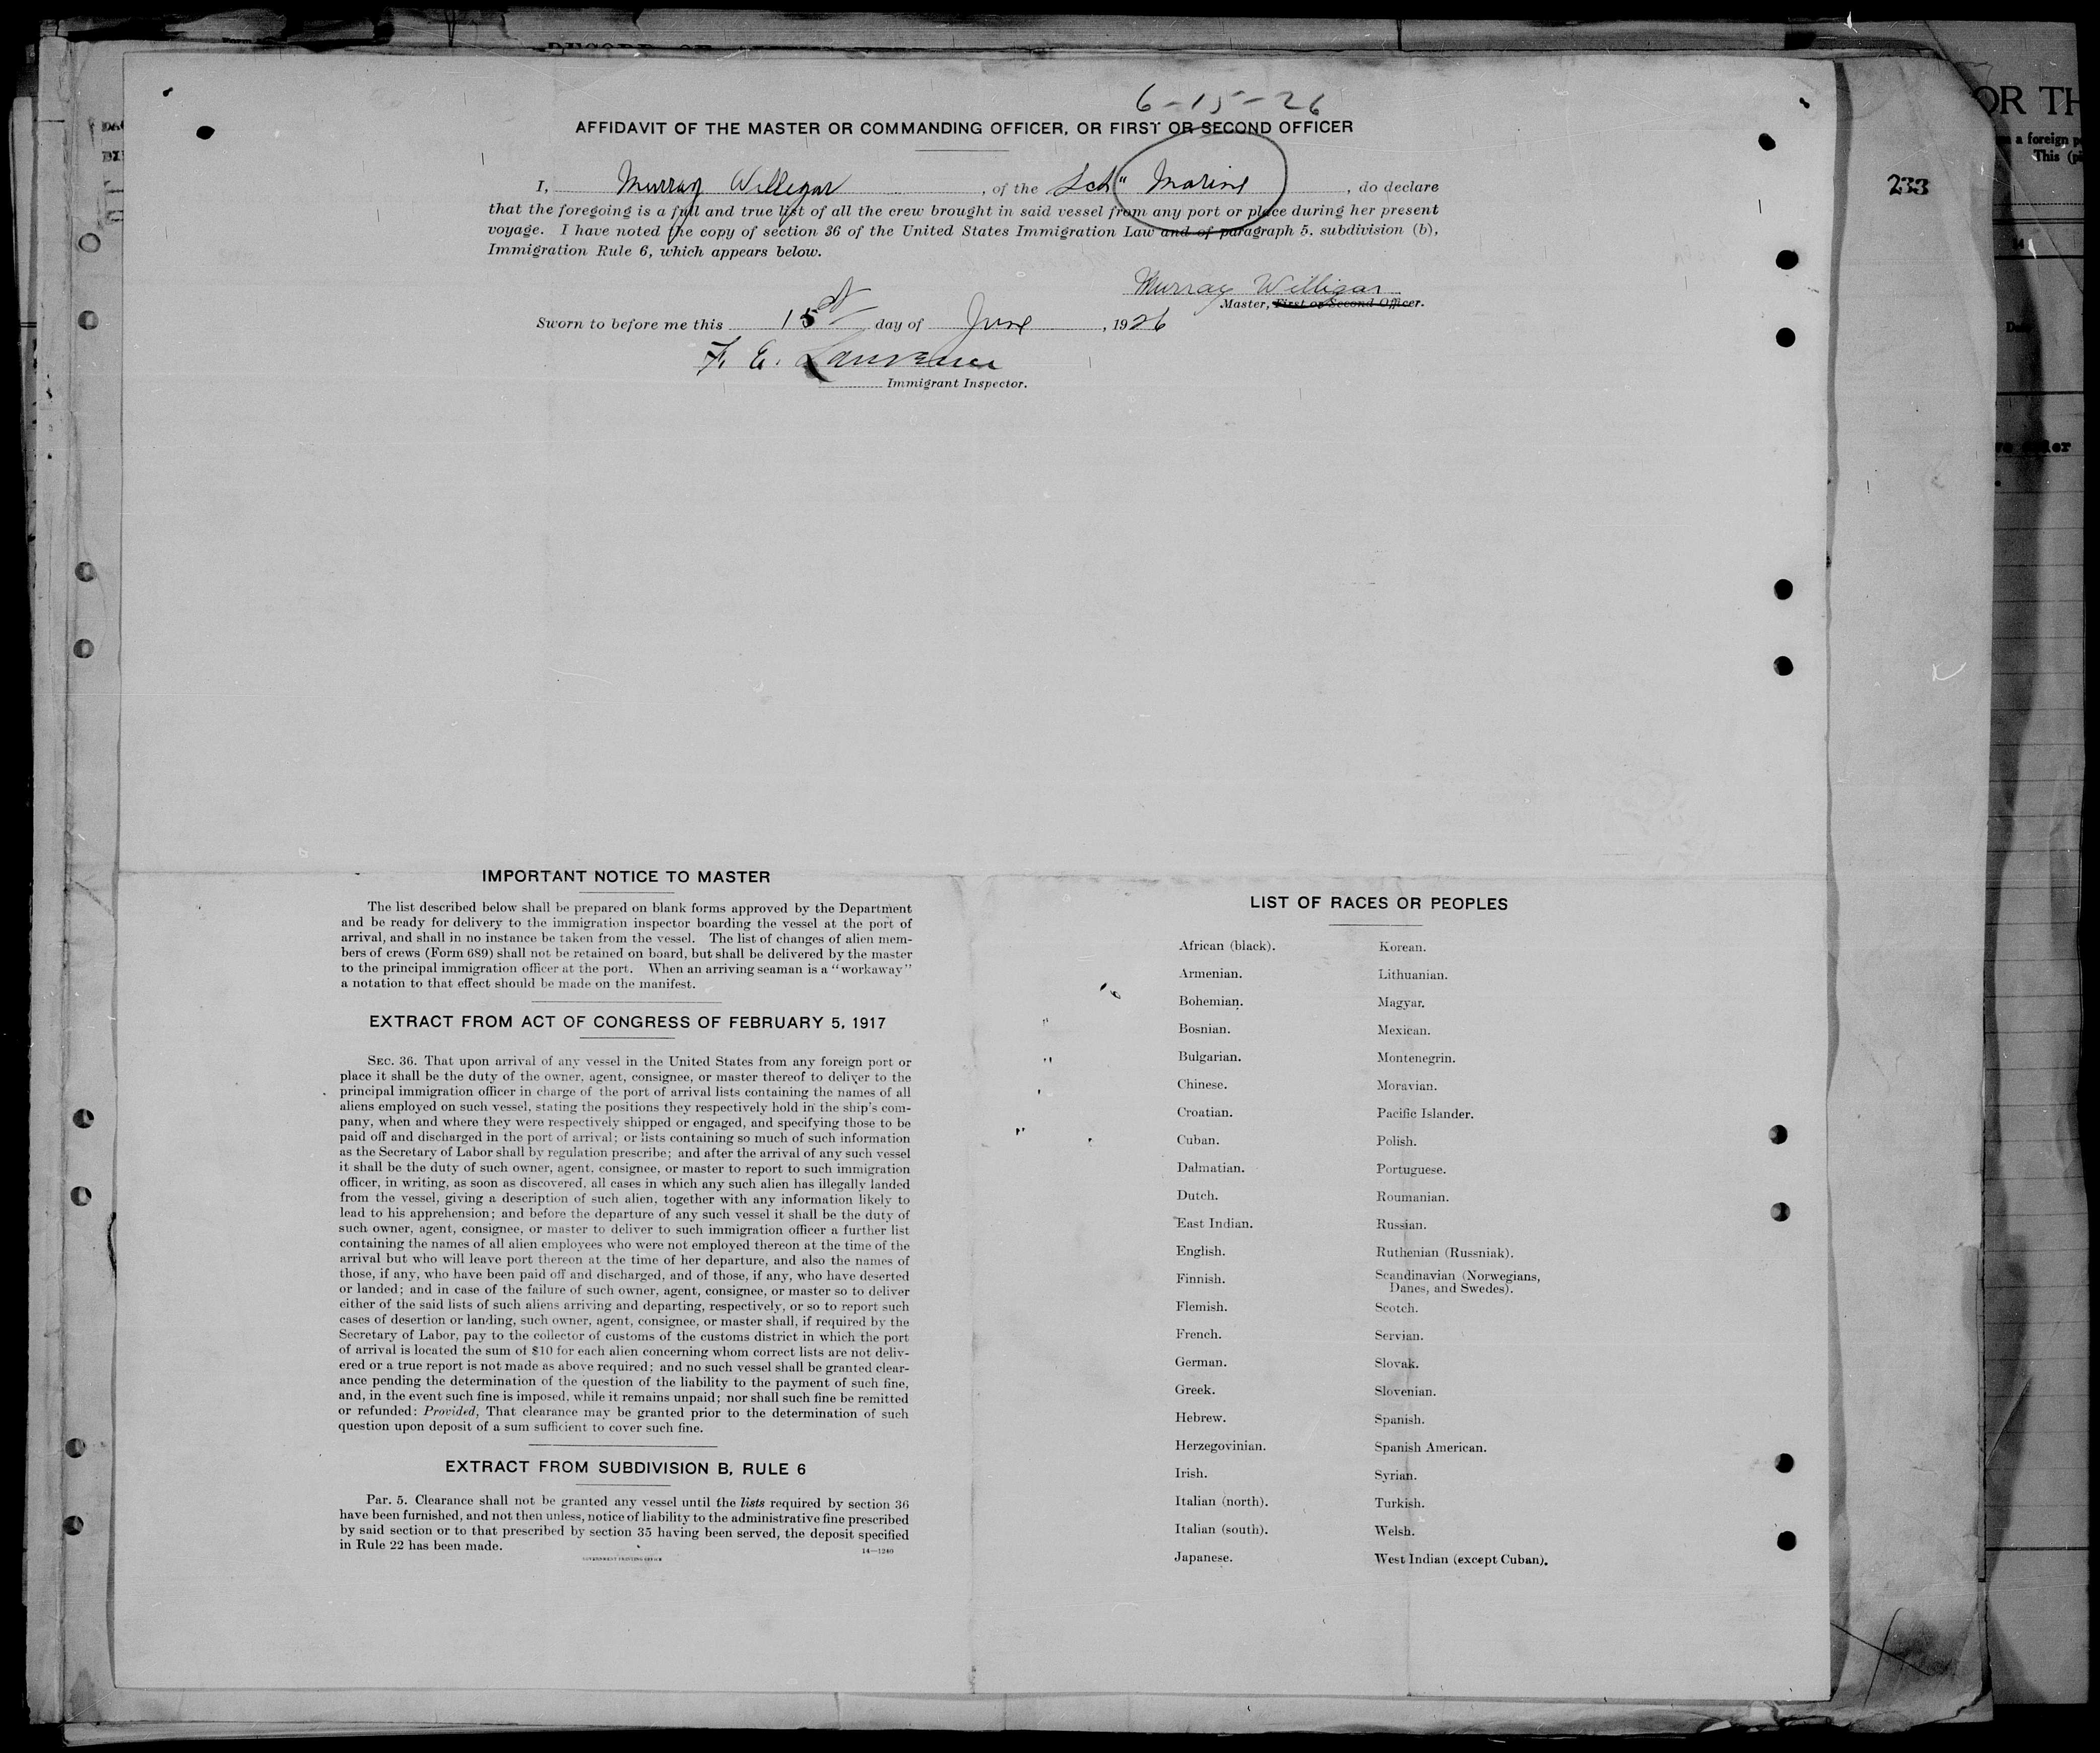 6-15-26
AFFIDAVIT OF THE MASTER OR COMMANDING OFFICER, OR FIRST OR SECOND OFFICER
I, Murray Willigar, of the Sch "Marine, do declare
that the foregoing is a full and true list of all the crew brought in said vessel from any port or place during her present
voyage. I have noted the copy of section 36 of the United States Immigration Law and of paragraph 5, subdivision (b),
Immigration Rule 6, which appears below.
Murray Willigar
Master, First or Second Officer.
Sworn to before me this 15 day of June, 1926
F. E. Lawrence
Immigrant Inspector.
233
IMPORTANT NOTICE TO MASTER
The list described below shall be prepared on blank forms approved by the Department
and be ready for delivery to the immigration inspector boarding the vessel at the port of
arrival, and shall in no instance be taken from the vessel. The list of changes of alien mem-
bers of crews (Form 689) shall not be retained on board, but shall be delivered by the master
to the principal immigration officer at the port. When an arriving seaman is a "workaway"
a notation to that effect should be made on the manifest.
EXTRACT FROM ACT OF CONGRESS OF FEBRUARY 5, 1917
SEC. 36. That upon arrival of any vessel in the United States from any foreign port or
place it shall be the duty of the owner, agent, consignee, or master thereof to deliver to the
principal immigration officer in charge of the port of arrival lists containing the names of all
aliens employed on such vessel, stating the positions they respectively hold in the ship's com-
pany, when and where they were respectively shipped or engaged, and specifying those to be
paid off and discharged in the port of arrival; or lists containing so much of such information
as the Secretary of Labor shall by regulation prescribe; and after the arrival of any such vessel
it shall be the duty of such owner, agent, consignee, or master to report to such immigration
officer, in writing, as soon as discovered, all cases in which any such alien has illegally landed
from the vessel, giving a description of such alien, together with any information likely to
lead to his apprehension; and before the departure of any such vessel it shall be the duty of
such owner, agent, consignee, or master to deliver to such immigration officer a further list
containing the names of all alien employees who were not employed thereon at the time of the
arrival but who will leave port thereon at the time of her departure, and also the names of
those, if any, who have been paid off and discharged, and of those, if any, who have deserted
or landed; and in case of the failure of such owner, agent, consignee, or master so to deliver
either of the said lists of such aliens arriving and departing, respectively, or so to report such
cases of desertion or landing, such owner, agent, consignee, or master shall, if required by the
Secretary of Labor, pay to the collector of customs of the customs district in which the port
of arrival is located the sum of $10 for each alien concerning whom correct lists are not deliv-
ered or a true report is not made as above required; and no such vessel shall be granted clear-
ance pending the determination of the question of the liability to the payment of such fine,
and, in the event such fine is imposed, while it remains unpaid; nor shall such fine be remitted
or refunded: Provided, That clearance may be granted prior to the determination of such
question upon deposit of a sum sufficient to cover such fine.
EXTRACT FROM SUBDIVISION B, RULE 6
Par. 5. Clearance shall not be granted any vessel until the lists required by section 36
have been furnished, and not then unless, notice of liability to the administrative fine prescribed
by said section or to that prescribed by section 35 having been served, the deposit specified
in Rule 22 has been made.
14—1240
GOVERNMENT PRINTING OFFICE
LIST OF RACES OR PEOPLES
African (black).
Armenian.
Bohemian.
Bosnian.
Bulgarian.
Chinese.
Croatian.
Cuban.
Dalmatian.
Dutch.
East Indian.
English.
Finnish.
Flemish.
French.
German.
Greek.
Hebrew.
Herzegovinian.
Irish.
Italian (north).
Italian (south).
Japanese.
Korean.
Lithuanian.
Magyar.
Mexican.
Montenegrin.
Moravian.
Pacific Islander.
Polish.
Portuguese.
Roumanian.
Russian.
Ruthenian (Russniak).
Scandinavian (Norwegians,
Danes, and Swedes).
Scotch.
Servian.
Slovak.
Slovenian.
Spanish.
Spanish American.
Syrian.
Turkish.
Welsh.
West Indian (except Cuban).
OR TH
a foreign
This